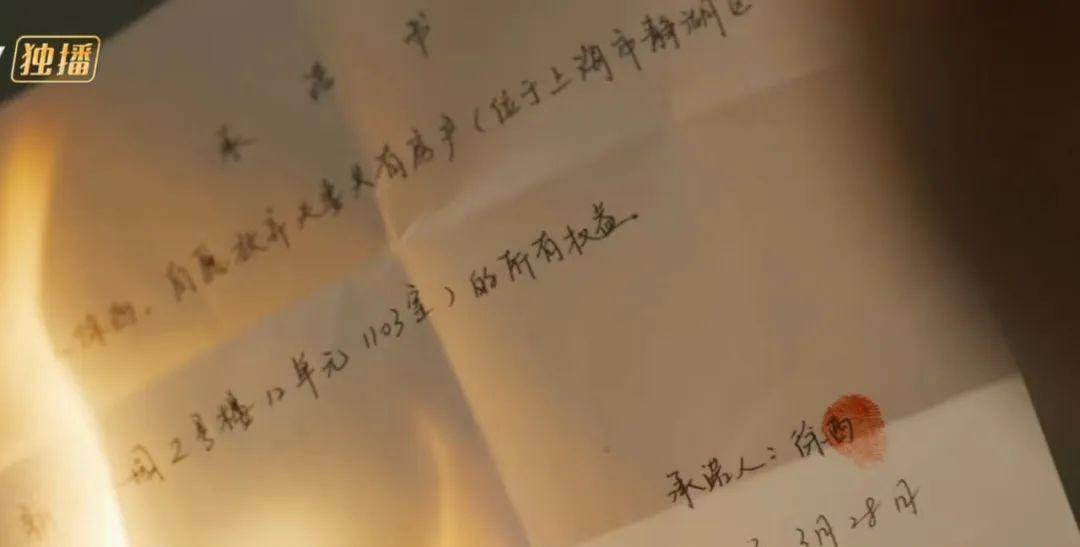 独播
承诺书
徐酉，自愿放弃夫妻共有房产（位于上湖市静湖区
园2号楼12单元1103室）的所有权益．
承诺人：徐酉
3月28日